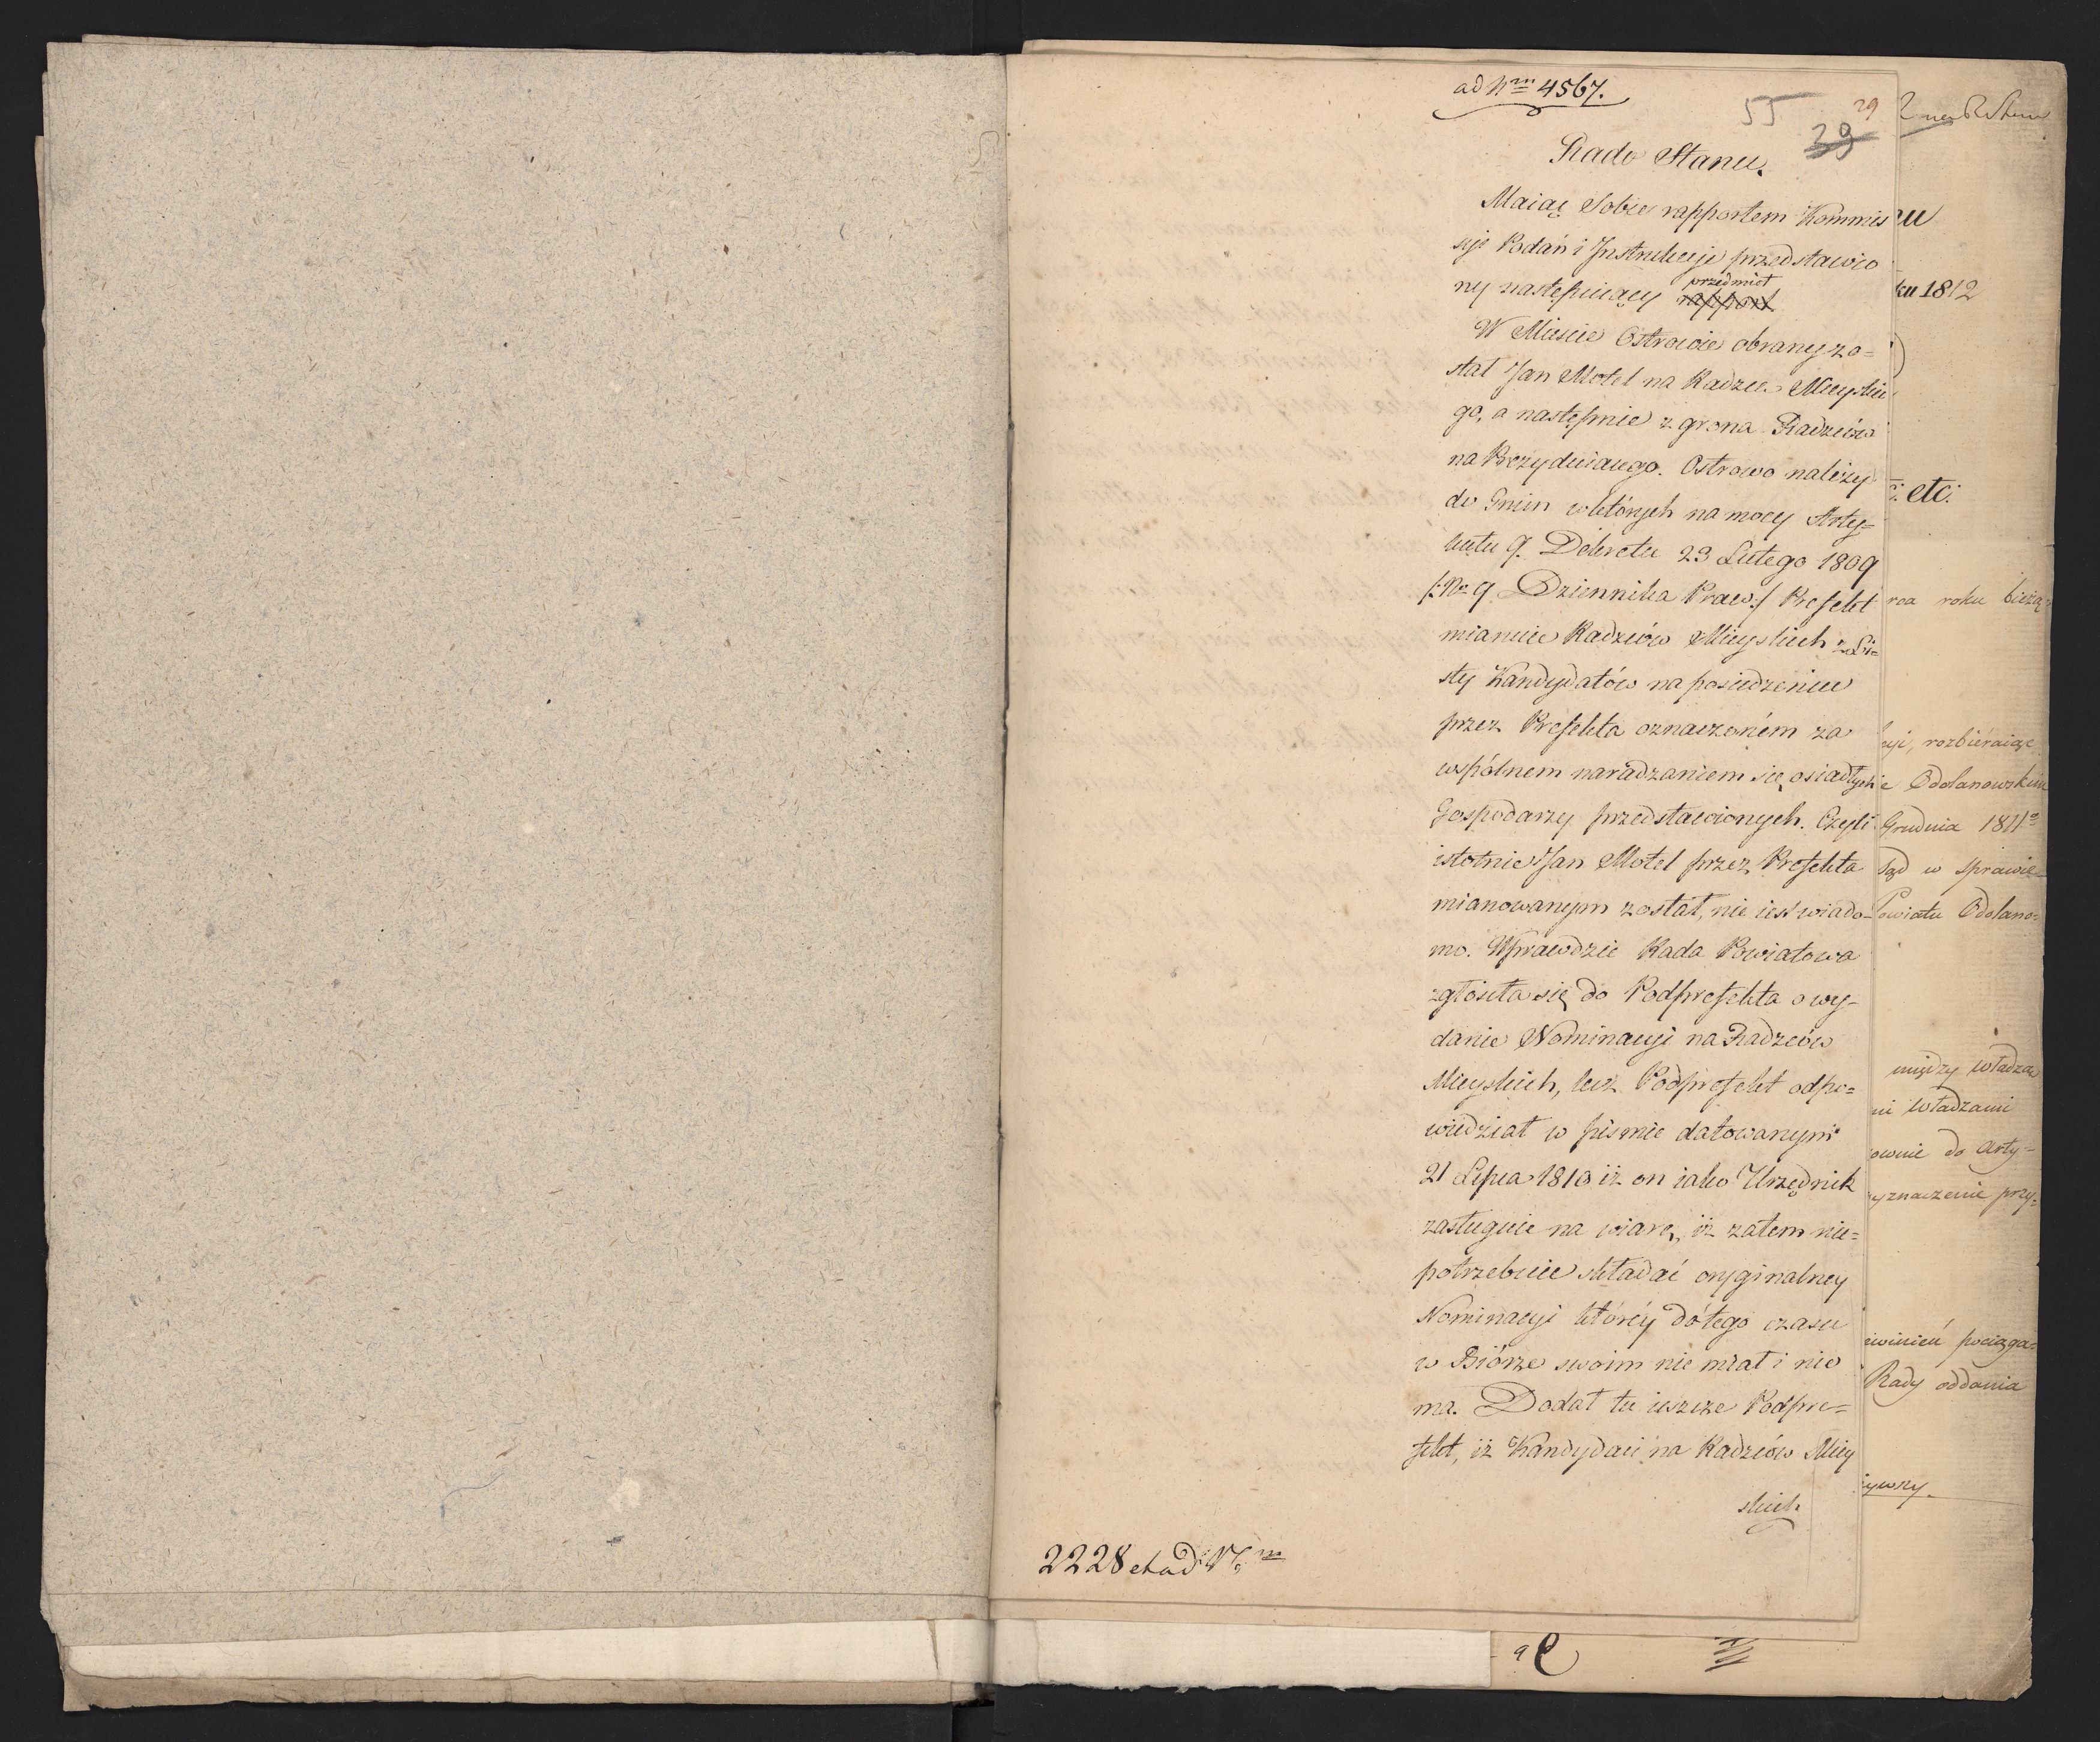 ad Nrm 4567.
55 29
29
Rada Stanu.
Maiąc Sobie rapportem Kommis
syi Podań i Instrukcyi przedstawio
ny następuiący przedmiot rapport
W Mieście Ostrowie obrany zo=
stał Jan Motel na Radzcę Mieyskie
go, a następnie z grona Radzców
na Prezyduiącego. Ostrowo należy
do Gmin w których na mocy Arty=
kułu 9. Dekretu 23 Lutego 1809
/:No 9 Dziennika Praw:/ Prefekt
mianuie Radzców Mieyskich z Li=
sty Kandydatów na posiedzeniu
przez Prefekta oznaczoném za
wspólnem naradzaniem się osiadłych
Gospodarzy przedstawionych. Czyli
istotnie Jan Motel przez Prefekta
mianowanym został, nie iest wiado=
mo. Wprawdzie Rada Powiatowa
zgłosiła się do Podprefekta o wy=
danie Nominacyi na Radzców
Mieyskich, lecz Podprefekt odpo=
wiedział w piśmie datowanym
21 Lipca 1810 iż on iako Urzędnik
zasługuie na wiarę, iż zatem nie=
potrzebuie składać oryginalney
Nominacyi któréy dotego czasu
w Biórze swoim nie miał i nie
ma. Dodał tu ieszcze Podpre=
fekt, iż Kandydaci na Radzców Miey
skich
2228 et ad Nm
ku 1812
etc:
rca roku bieżą
cyi, rozbieraiąc
e Odolanowskim
Grudnia 1811
Sąd w sprawie
Powiatu Odolano=
między władzą
ni władzami
ownie do arty=
yznaczenie przy=
ewinień pociąga=
Rady oddania
ywszy.